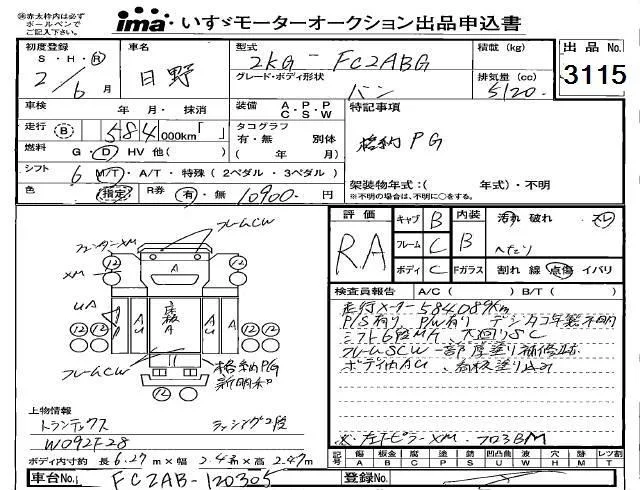 ㊟赤太枠内は必ず
ボールペンで
ご記入下さい。
ima いすゞモーターオークション出品申込書
初度登録
S・H・Ⓡ
2/6月
車名
日野
型式
2KG-FC2ABG
グレード・ボディ形状
バン
積載 (kg)
排気量 (cc)
5120.
出品 No.
3115
車検 年 月・抹消
装備 A.P.P C.S.W
特記事項
格納PG
走行 Ⓑ 584 000km「 」
タコグラフ
有・無 別体
( 年 月)
燃料 G・Ⓓ HV 他( )
シフト 6 M/T・A/T・特殊(2ペダル・3ペダル)
架装物年式:( 年式)・不明
※不明の場合は、不明に○をする。
色 指定 R券 有・無 10900.円
評価
RA
キャブ B
フレーム C
ボディ C
内装 B
Fガラス
汚れ 破れ
割れ 線 点傷 イバリ
検査員報告 A/C( ) B/T( )
走行メーター584089km
P/S有り P/W有り デジタコ年製不明
シフト6段MA、
フレームSCW 一部厚塗り補修跡
ボディ内AU
※左下ピラーXM・フロ3BM
フレームCW
フェンダーXM
XM
12
12
12
12
12
12
A
UA
AU
A
AU
フレームCW
格納PG
新明和
上物情報
トランテックス
ラッシング2段
W092F28
ボディ内寸約 長 6.27m × 幅 2.43m × 高 2.47m
記号 傷 板金 腐 塗 錆 凹凸曲 波 穴 跡 レツ割
A B C P S U W H M T
車台No. FC2AB-120305
登録No.